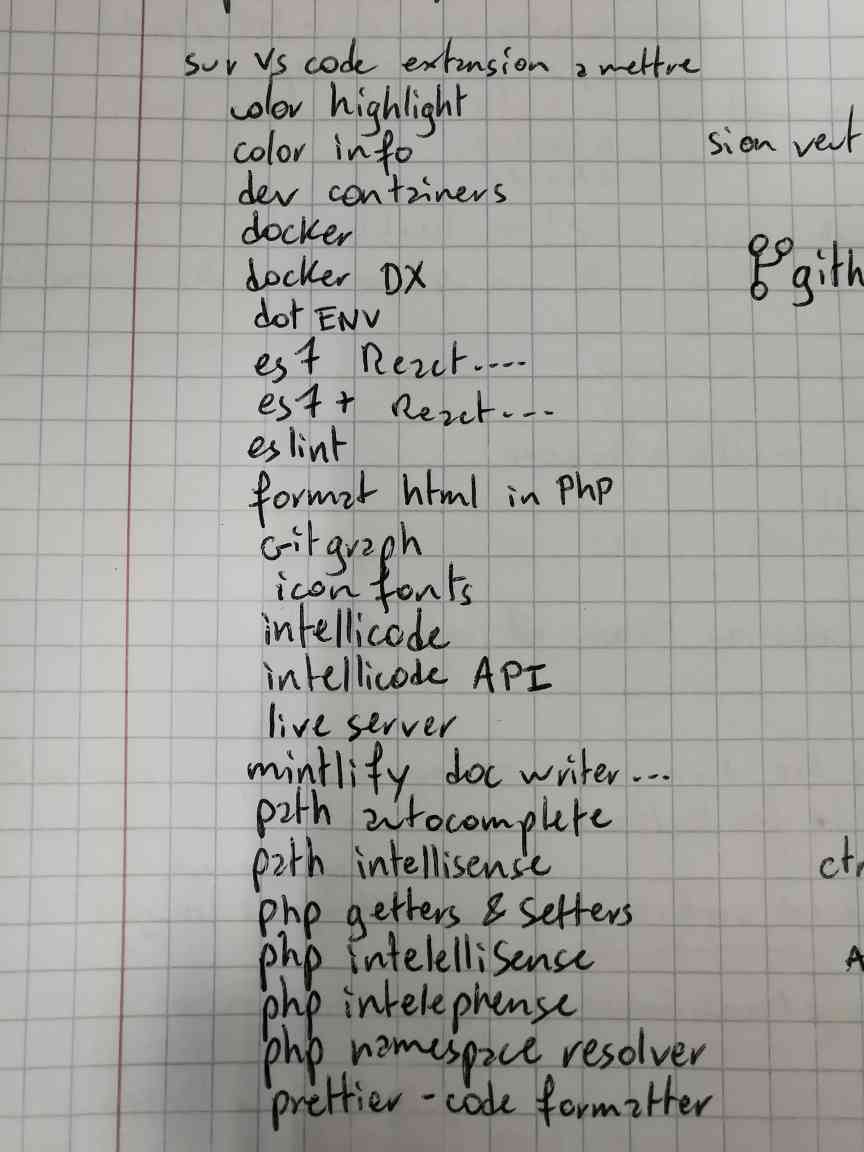 sur vs code extansion a mettre
color highlight
color info
sion vert
dev containers
docker
docker DX
gith
dot ENV
es7 React....
es7 + React...
eslint
format html in Php
Git graph
icon fonts
intellicode
intellicode API
live server
mintlify doc writer...
path autocomplete
path intellisense
ctr
php getters & setters
php intelelliSense
A
php intelephense
php namespace resolver
prettier - code formatter